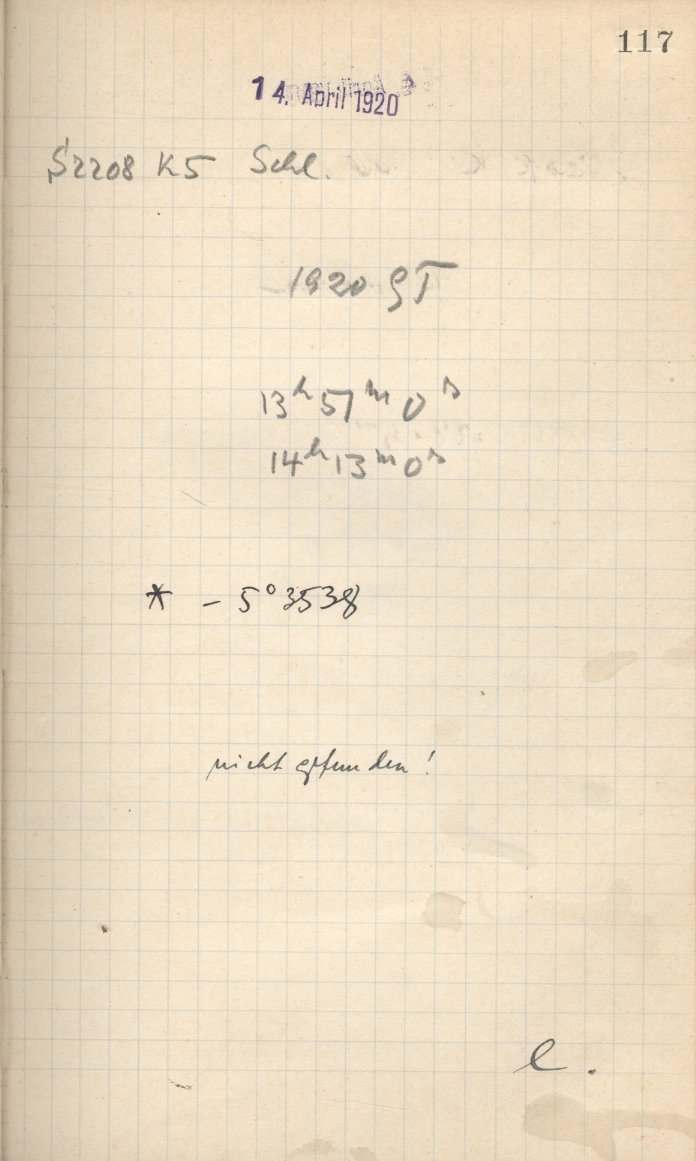 117
14. April 1920
S2208 K5 Schl.
1920 GT
13ʰ 57ᵐ 0ˢ
14ʰ 13ᵐ 0ˢ
* – 5° 3538
nicht gefunden!
l.